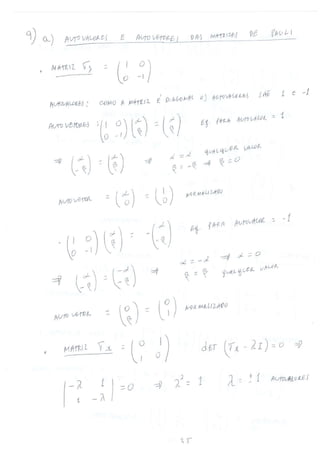 9) a) AUTOVALORES E AUTOVETORES DAS MATRIZES DE PAULI
• MATRIZ σ3 = (1 0; 0 -1)
AUTOVALORES: COMO A MATRIZ É DIAGONAL OS AUTOVALORES SÃO 1 E -1
AUTOVETORES: (1 0; 0 -1)(α; β) = (α; β) EQ. PARA AUTOVALOR = 1
⇒ (α; -β) = (α; β) ⇒ α = α QUALQUER VALOR
β = -β ⇒ β = 0
AUTOVETOR = (α; 0) = (1; 0) NORMALIZADO
- (1 0; 0 -1)(α; β) = -(α; β) EQ. PARA AUTOVALOR = -1
⇒ (α; -β) = (-α; -β) ⇒ α = -α ⇒ α = 0
β = β QUALQUER VALOR
AUTOVETOR = (0; β) = (0; 1) NORMALIZADO
• MATRIZ σ1 = (0 1; 1 0) det (σ1 - λI) = 0 ⇒
|-λ 1; 1 -λ| = 0 ⇒ λ² = 1 λ = ±1 AUTOVALORES